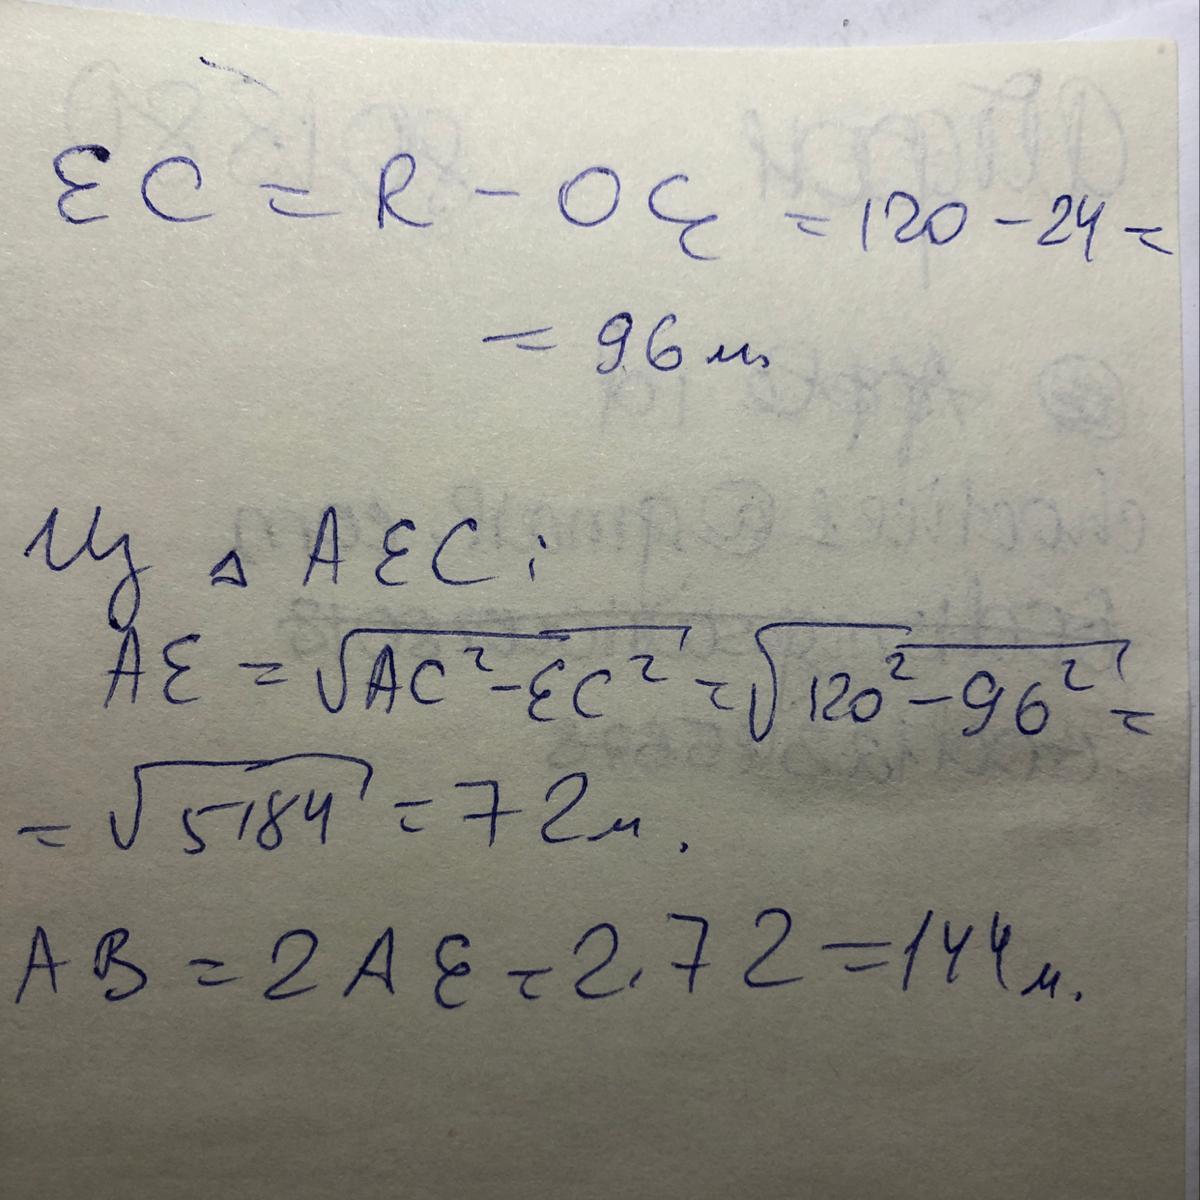 EC = R - OE = 120 - 24 =
= 96 м.
Из △ AEC:
AE = √AC² - EC² = √120² - 96² =
= √5184 = 72 м.
AB = 2 AE = 2 · 72 = 144 м.